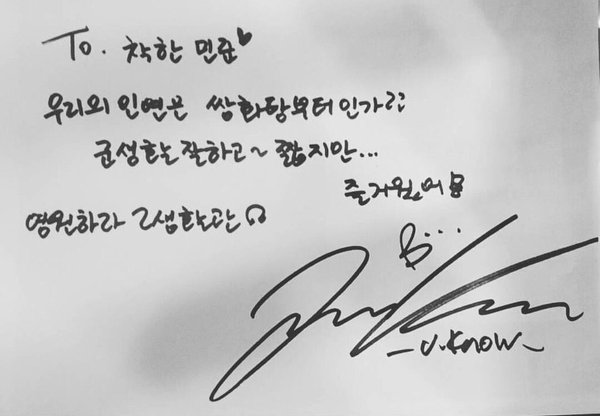 To. 착한 민준♥
우리의 인연은 쌍화탕부터인가?
군생활은 잘하고~ 짧지만...
즐거웠어
영원하라 고생활관
B...
-U.Know-